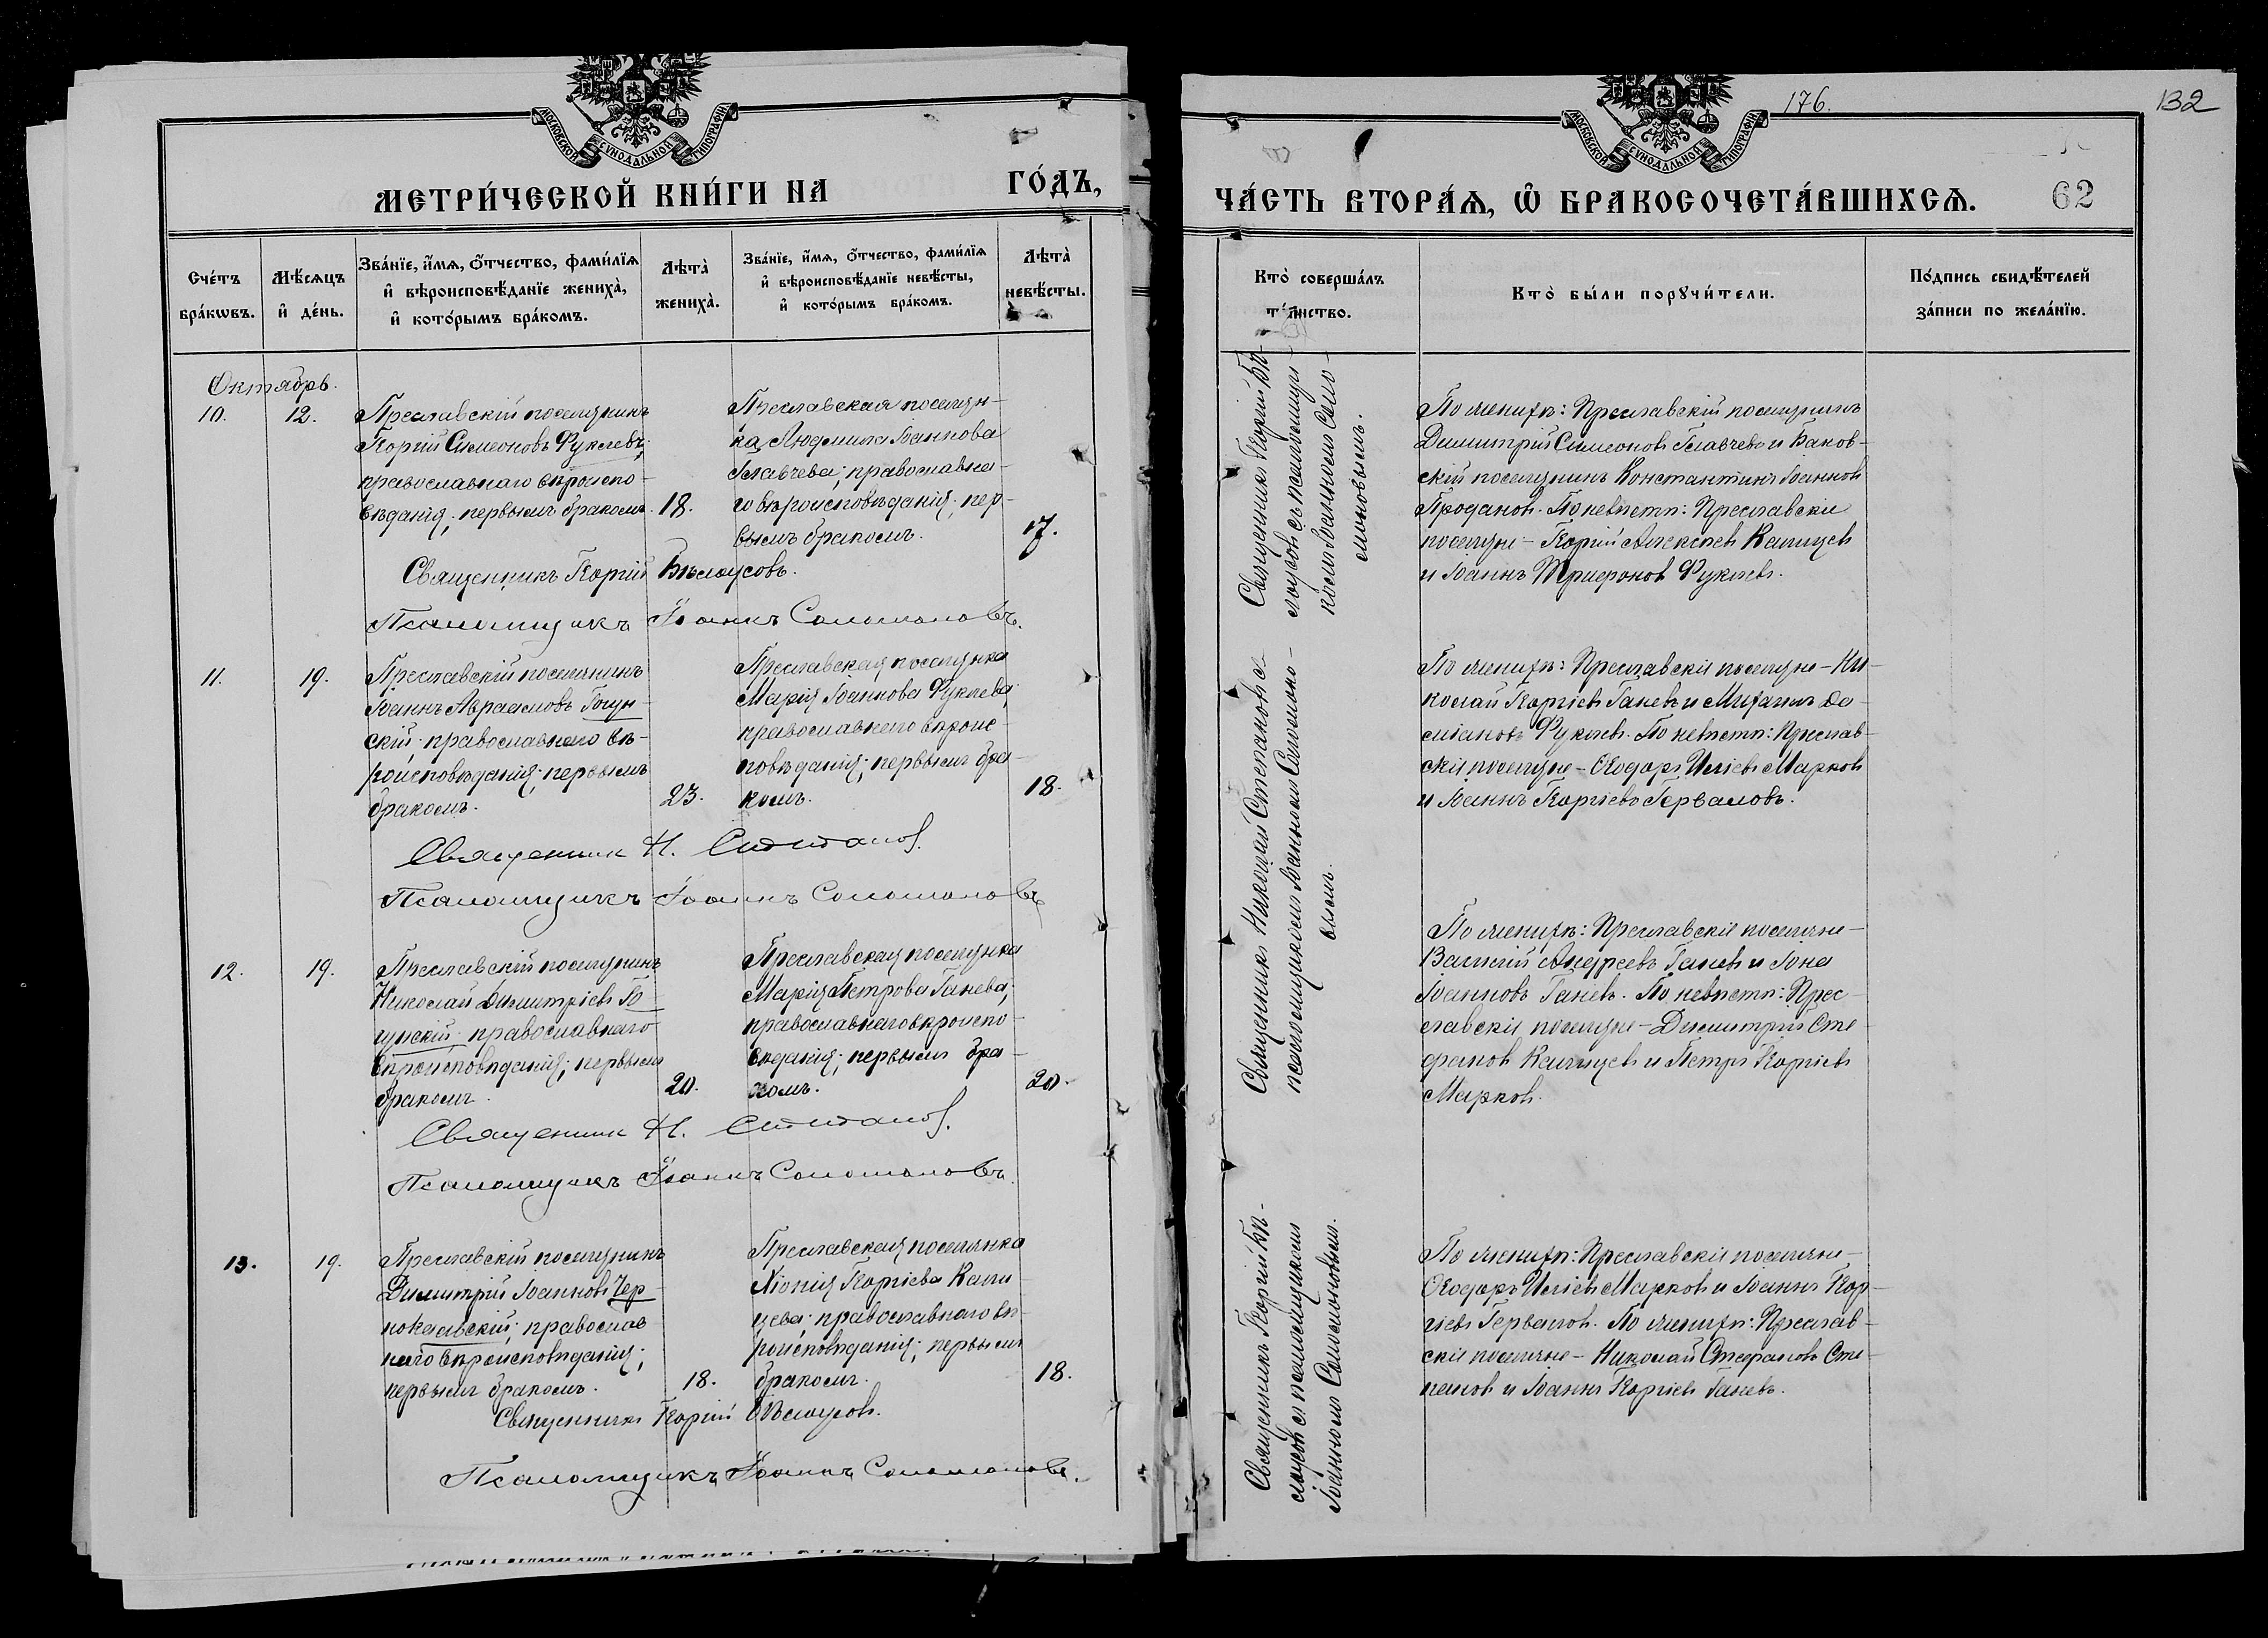 МОСКОВСКОЙ СѴНОДАЛЬНОЙ ТИПОГРАФІИ
МЕТРИ́ЧЕСКОЙ КНИ́ГИ НА ГО́ДЪ,
Сче́тъ бра́кѡвъ.
Мѣ́сяцъ и҆ де́нь.
Зва́нїе, и҆́мѧ, ѻ҆́тчество, фами́лїѧ
и҆ вѣроисповѣ́данїе жениха̀,
и҆ кото́рымъ бра́комъ.
Лѣта̀ жениха̀.
Зва́нїе, и҆́мѧ, ѻ҆́тчество, фами́лїѧ
и҆ вѣроисповѣ́данїе невѣ́сты,
и҆ кото́рымъ бра́комъ.
Лѣта̀ невѣ́сты.
Октябрь.
10.
12.
Преславскій поселянинъ
Георгій Симеоновъ Фуклевъ;
православнаго вѣроиспо-
вѣданія; первымъ бракомъ.
18.
Преславская поселян-
ка Людмила Іоаннова
Главчева; православна-
го вѣроисповѣданія; пер-
вымъ бракомъ.
17.
Священникъ Георгій Бѣлоусовъ.
Псаломщикъ Іоаннъ Соломоновъ.
11.
19.
Преславскій поселянинъ
Іоаннъ Авраамовъ
скій; православнаго вѣ-
роисповѣданія; первымъ
бракомъ.
23.
Преславская поселянка
Марія Іоаннова Фуклева;
православнаго вѣроис-
повѣданія; первымъ бра-
комъ.
18.
Священникъ Н. Степановъ.
Псаломщикъ Іоаннъ Соломоновъ
12.
19.
Преславскій поселянинъ
Николай Димитріевъ
православнаго
вѣроисповѣданія; первымъ
бракомъ.
20.
Преславская поселянка
Марія Петрова Ганева;
православнаго вѣроиспо-
вѣданія; первымъ бра-
комъ.
20.
Священникъ Н. Степановъ.
Псаломщикъ Іоаннъ Соломоновъ.
13.
19.
Преславскій поселянинъ
Димитрій Іоанновъ Чер-
православ-
наго вѣроисповѣданія;
первымъ бракомъ.
18.
Преславская поселянка
Хіонія Георгіева Калш-
цева; православнаго вѣ-
роисповѣданія; первымъ
бракомъ.
18.
Священникъ Георгій Бѣлоусовъ.
Псаломщикъ Іоаннъ Соломоновъ.
176.
132
МОСКОВСКОЙ СѴНОДАЛЬНОЙ ТИПОГРАФІИ
ЧА́СТЬ ВТОРА́Ѧ, Ѡ҆ БРАКОСОЧЕТА́ВШИХСѦ.
62
Кто̀ соверша́лъ та́инство.
Кто̀ бы́ли порꙋчи́тели.
По́дпись свидѣ́телей
за́писи по жела́нїю.
Священникъ Георгій Бѣ-
лоусовъ съ псаломщи-
комъ Іоанномъ Соло-
моновымъ.
По женихѣ: Преславскій поселянинъ
Димитрій Симеоновъ Главчевъ и Банов-
скій поселянинъ Константинъ Іоанновъ
Продановъ. По невѣстѣ: Преславскіе
поселяне – Георгій Алексѣевъ
и Іоаннъ Трифоновъ Фуклевъ.
Священникъ Николай Степановъ съ
псаломщикомъ Іоанномъ Соломоно-
вымъ.
По женихѣ: Преславскіе поселяне – Ни-
колай Георгіевъ Ганевъ и Михаилъ
Фуклевъ. По невѣстѣ: Преслав-
скіе поселяне – Ѳеодоръ Иліевъ Марковъ
и Іоаннъ Георгіевъ Герваловъ.
По женихѣ: Преславскіе поселяне –
Василій Андреевъ Ганевъ и Іона
Іоанновъ Ганевъ. По невѣстѣ: Прес-
лавскіе поселяне – Димитрій Сте-
фановъ и Петръ Георгіевъ
Марковъ.
Священникъ Георгій Бѣ-
лоусовъ съ псаломщикомъ
Іоанномъ Соломоновымъ.
По женихѣ: Преславскіе поселяне –
Ѳеодоръ Иліевъ Марковъ и Іоаннъ Геор-
гіевъ Герваловъ. По женихѣ: Преслав-
скіе поселяне – Николай Стефановъ Сте-
пановъ и Іоаннъ Георгіевъ Ганевъ.